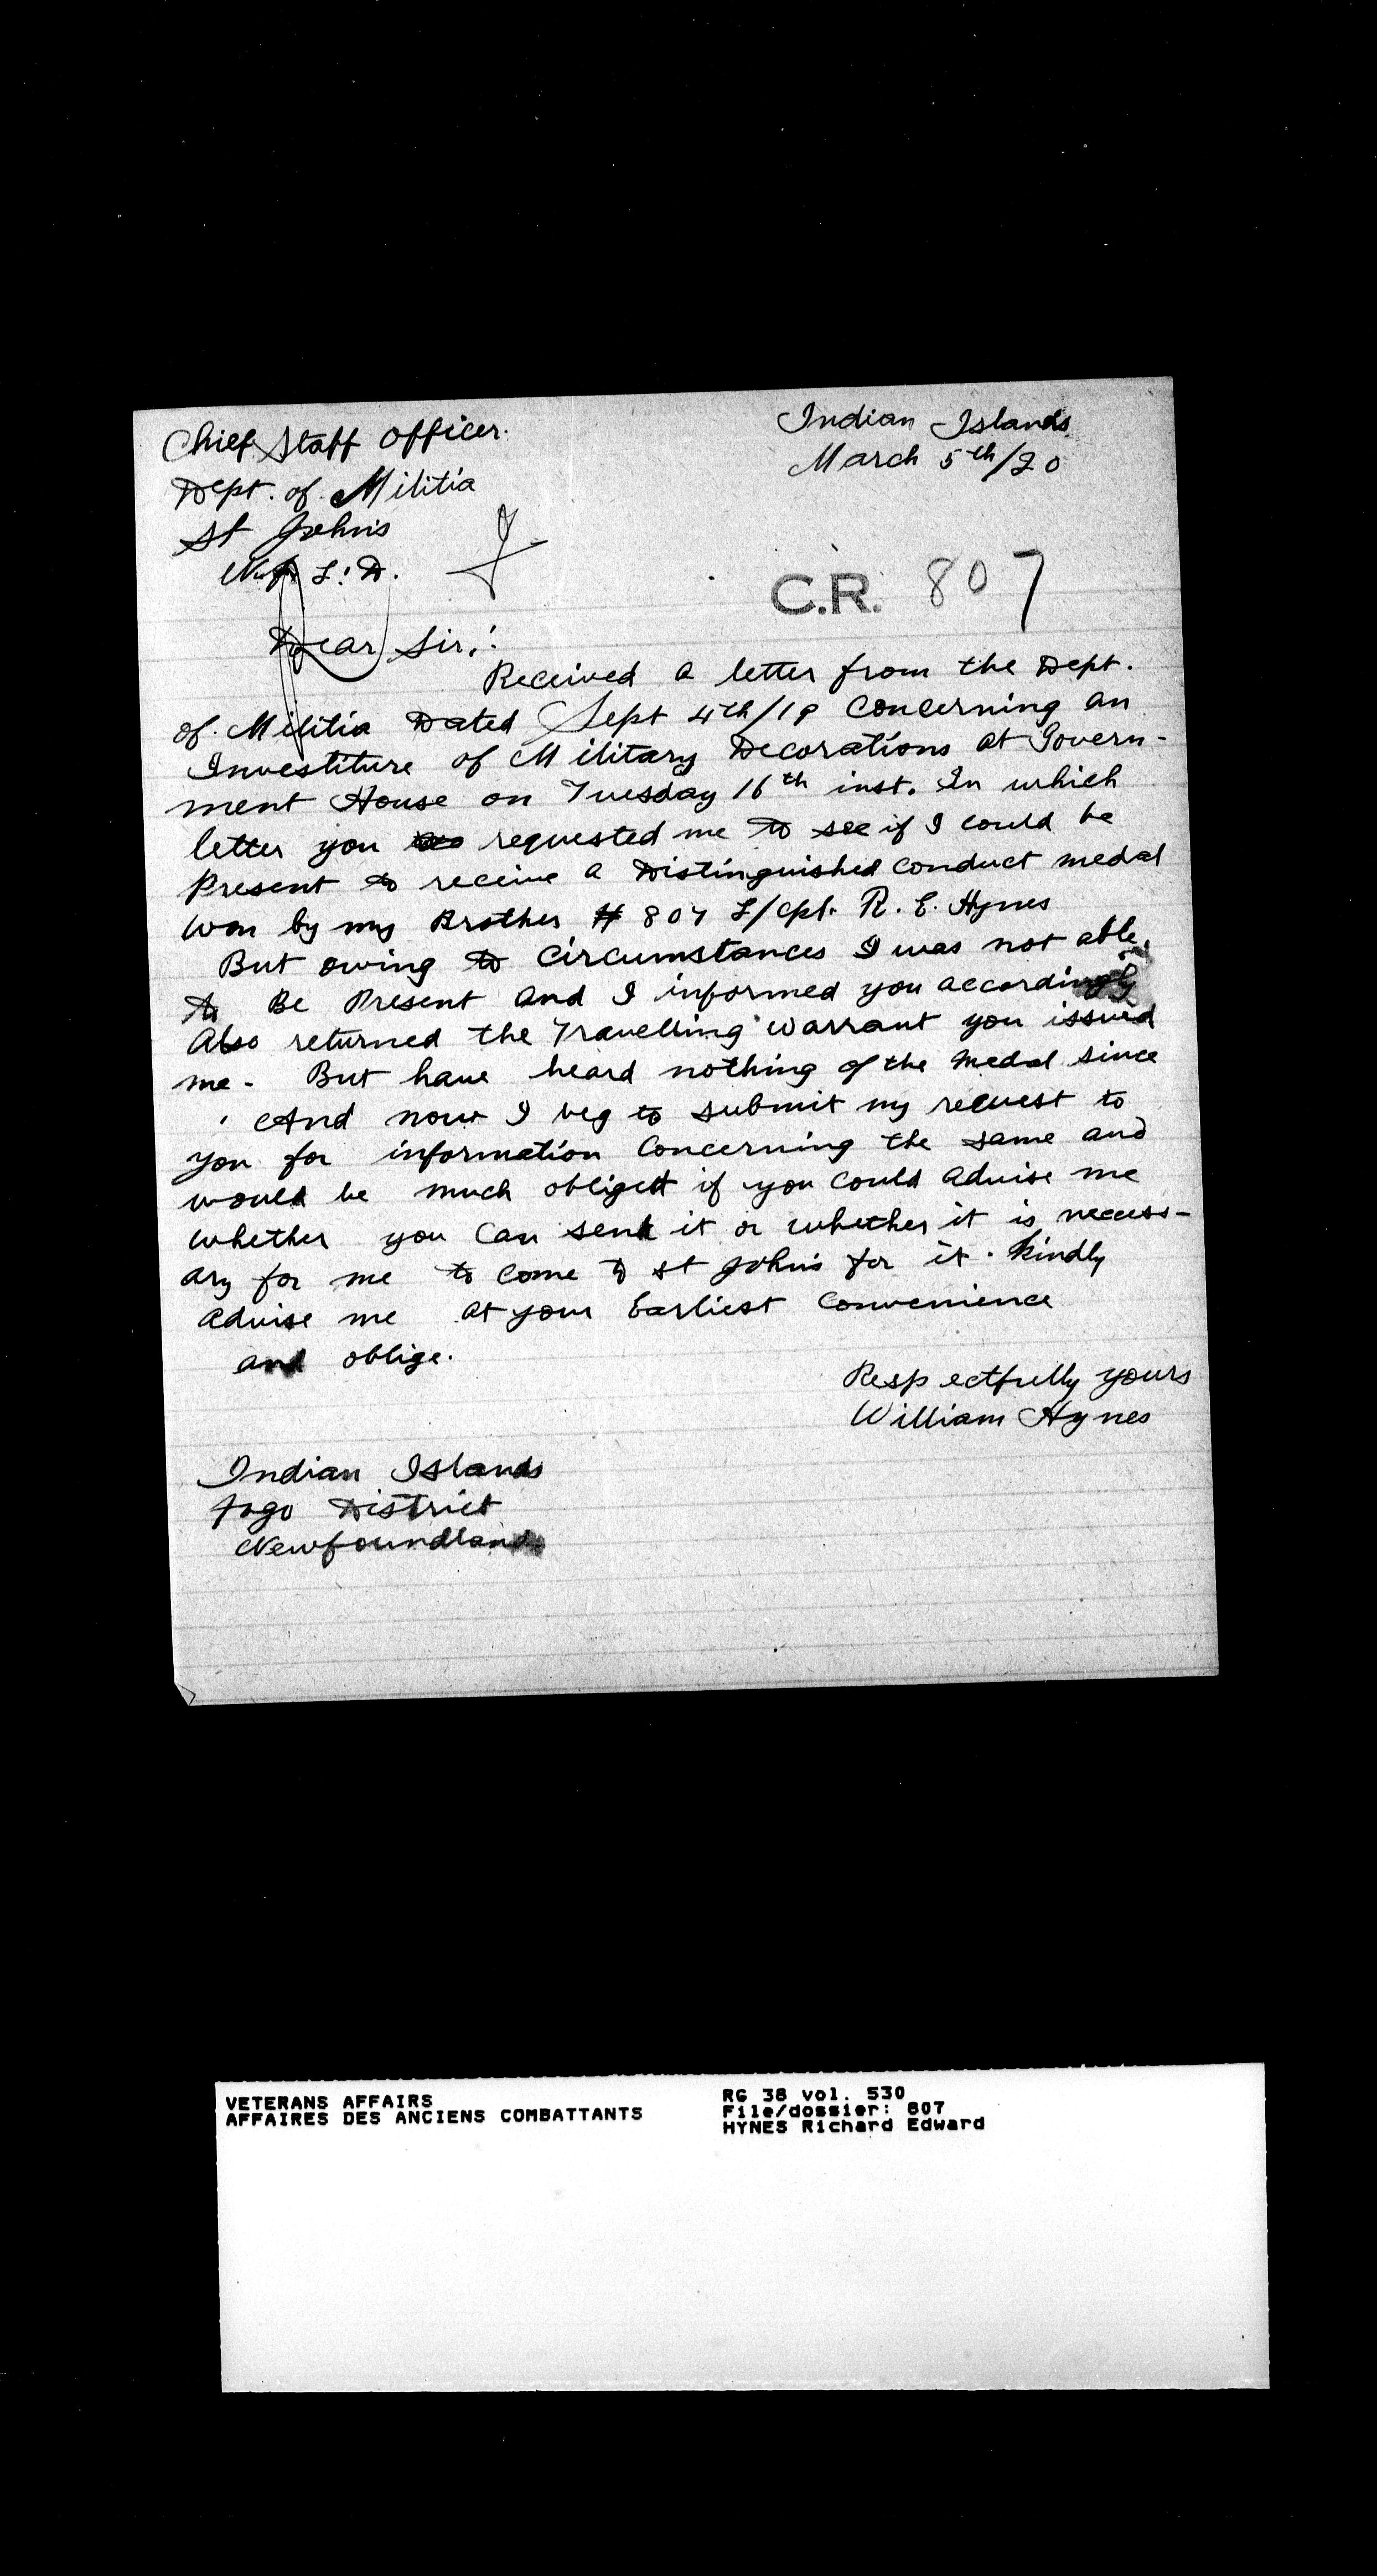 Chief Staff Officer.
Indian Islands
March 5th/20
Dept. of Militia
St John's
Nf. L'. D.
C.R. 807
Dear Sir,:
Received a letter from the Dept.
of Militia Dated Sept 4th/19 Concerning an
Investiture of Military Decorations at Govern-
ment House on Tuesday 16th inst. In which
letter you requested me to see if I could be
Present to receive a Distinguished Conduct medal
won by my Brother # 807 L/cpl. R. E. Hynes
But owing to Circumstances I was not able.
to Be Present and I informed you accordingly
Also returned the Travelling Warrant you issued
me. But have heard nothing of the Medal since
And now I beg to submit my request to
you for information Concerning the same and
would be much obliged if you Could Advise me
whether you Can send it or whether it is necess-
ary for me to Come to St John's for it. Kindly
Advise me at your Earliest Convenience
and oblige.
Respectfully yours
William Hynes
Indian Islands
Fogo District
Newfoundland
VETERANS AFFAIRS
AFFAIRES DES ANCIENS COMBATTANTS
RG 38 vol. 530
File/dossier: 807
HYNES Richard Edward